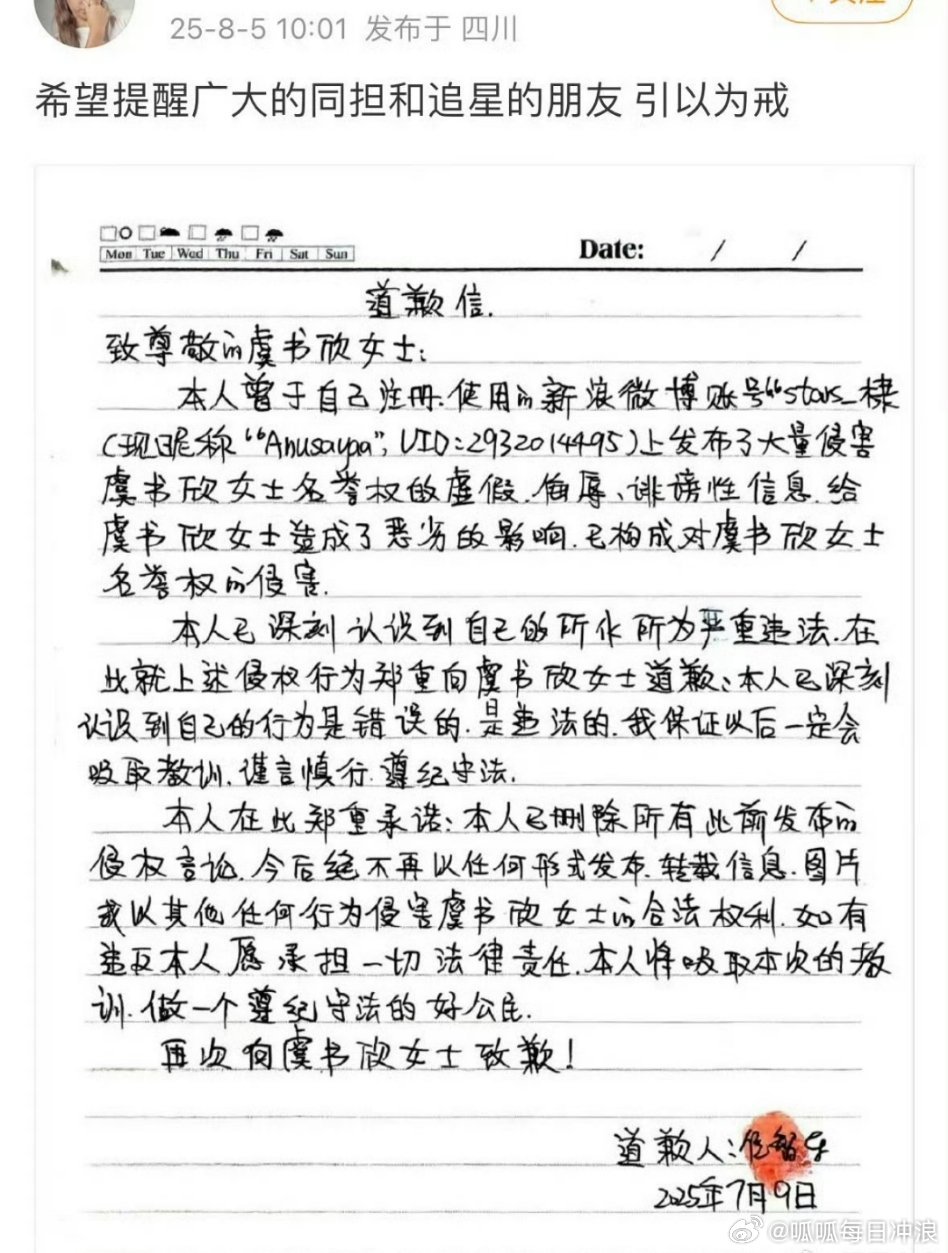 25-8-5 10:01 发布于 四川
希望提醒广大的同担和追星的朋友 引以为戒
Mon Tue Wed Thu Fri Sat Sun
Date: / /
道歉信.
致尊敬的虞书欣女士:
本人曾于自己注册.使用的新浪微博账号“stars_棣
(现昵称“Anusaypa”, UID:2932014495)上发布了大量侵害
虞书欣女士名誉权的虚假.侮辱、诽谤性信息.给
虞书欣女士造成了恶劣的影响.已构成对虞书欣女士
名誉权的侵害.
本人已深刻认识到自己的所作所为严重违法.在
此就上述侵权行为郑重向虞书欣女士道歉:本人已深刻
认识到自己的行为是错误的.是违法的.我保证以后一定会
吸取教训.谨言慎行.遵纪守法.
本人在此郑重承诺:本人已删除所有此前发布的
侵权言论.今后绝不再以任何形式发布.转载信息.图片
或以其他任何行为侵害虞书欣女士的合法权利.如有
违反本人愿承担一切法律责任.本人将吸取本次的教
训.做一个遵纪守法的好公民.
再次向虞书欣女士致歉!
道歉人:
2025年7月9日
@呱呱每日冲浪